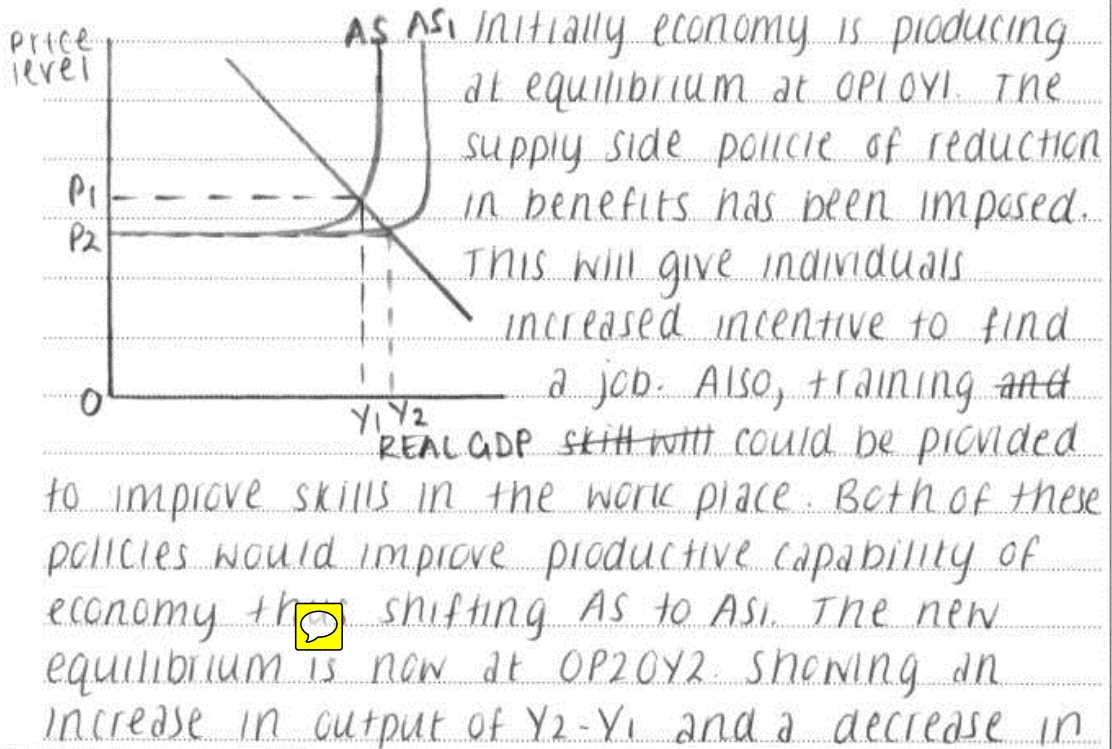 Price level
AS AS1
P1
P2
0
Y1 Y2
REAL GDP
Initially economy is producing
at equilibrium at OP1OY1. The
supply side policie of reduction
in benefits has been imposed.
This will give individuals
increased incentive to find
a job. Also, training and
skill will could be provided
to improve skills in the work place. Both of these
policies would improve productive capability of
economy shifting AS to AS1. The new
equilibrium is now at OP2OY2. Showing an
increase in output of Y2-Y1 and a decrease in